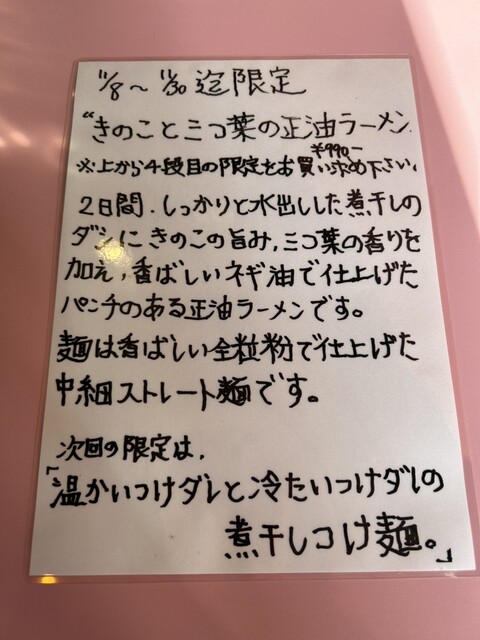 11/8〜11/30迄限定
"きのこと三つ葉の正油ラーメン
¥990-
※上から4段目の限定をお買い求め下さい。
2日間、しっかりと水出しした煮干しの
ダシにきのこの旨み、三つ葉の香りを
加え、香ばしいネギ油で仕上げた
パンチのある正油ラーメンです。
麺は香ばしい全粒粉で仕上げた
中細ストレート麺です。
次回の限定は、
「温かいつけダレと冷たいつけダレの
煮干しつけ麺。」